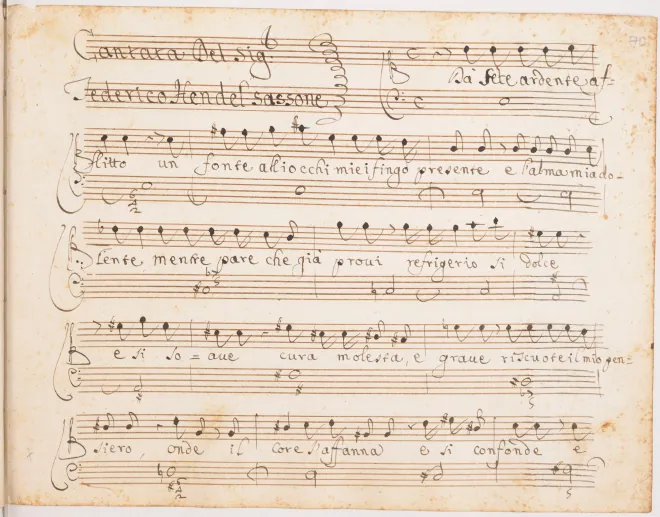 Cantata Del Sig.r
Federico Hendel Sassone
Dà sete ardente af=
flitto un fonte alli occhi miei fingo presente e l'alma mia do-
lente mentre pare che già proui refrigerio si dolce
e si so=aue cura molesta, e graue riscuote il mio pen-
siero, onde il core s'affanna e si confonde e